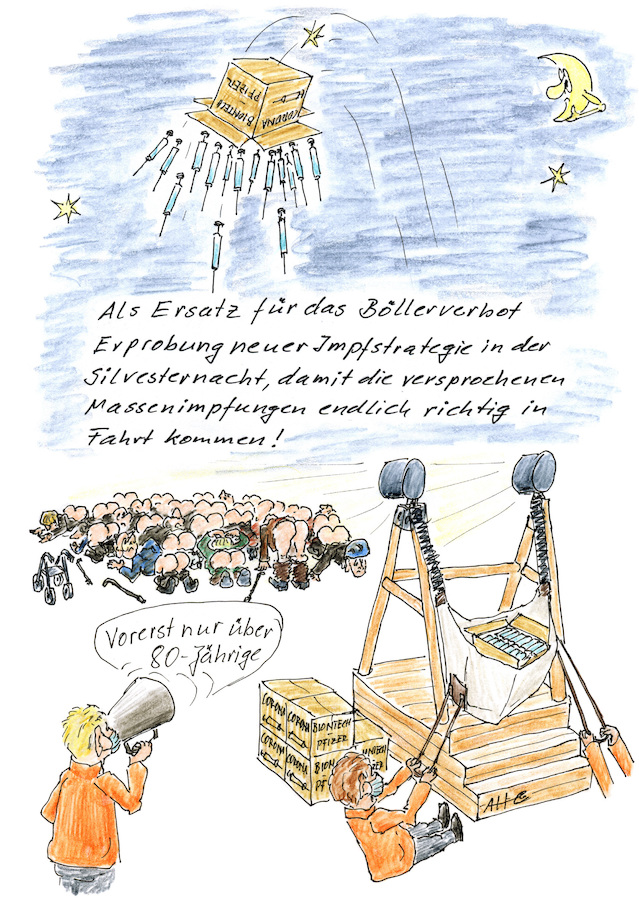 BIONTECH
PFIZER
CORONA
Als Ersatz für das Böllerverbot
Erprobung neuer Impfstrategie in der
Silvesternacht, damit die versprochenen
Massenimpfungen endlich richtig in
Fahrt kommen!
Vorerst nur über
80-Jährige
CORONA
CORONA
BIONTECH
PFIZER
CORONA
CORONA
BION
PF
NTECH
IZER